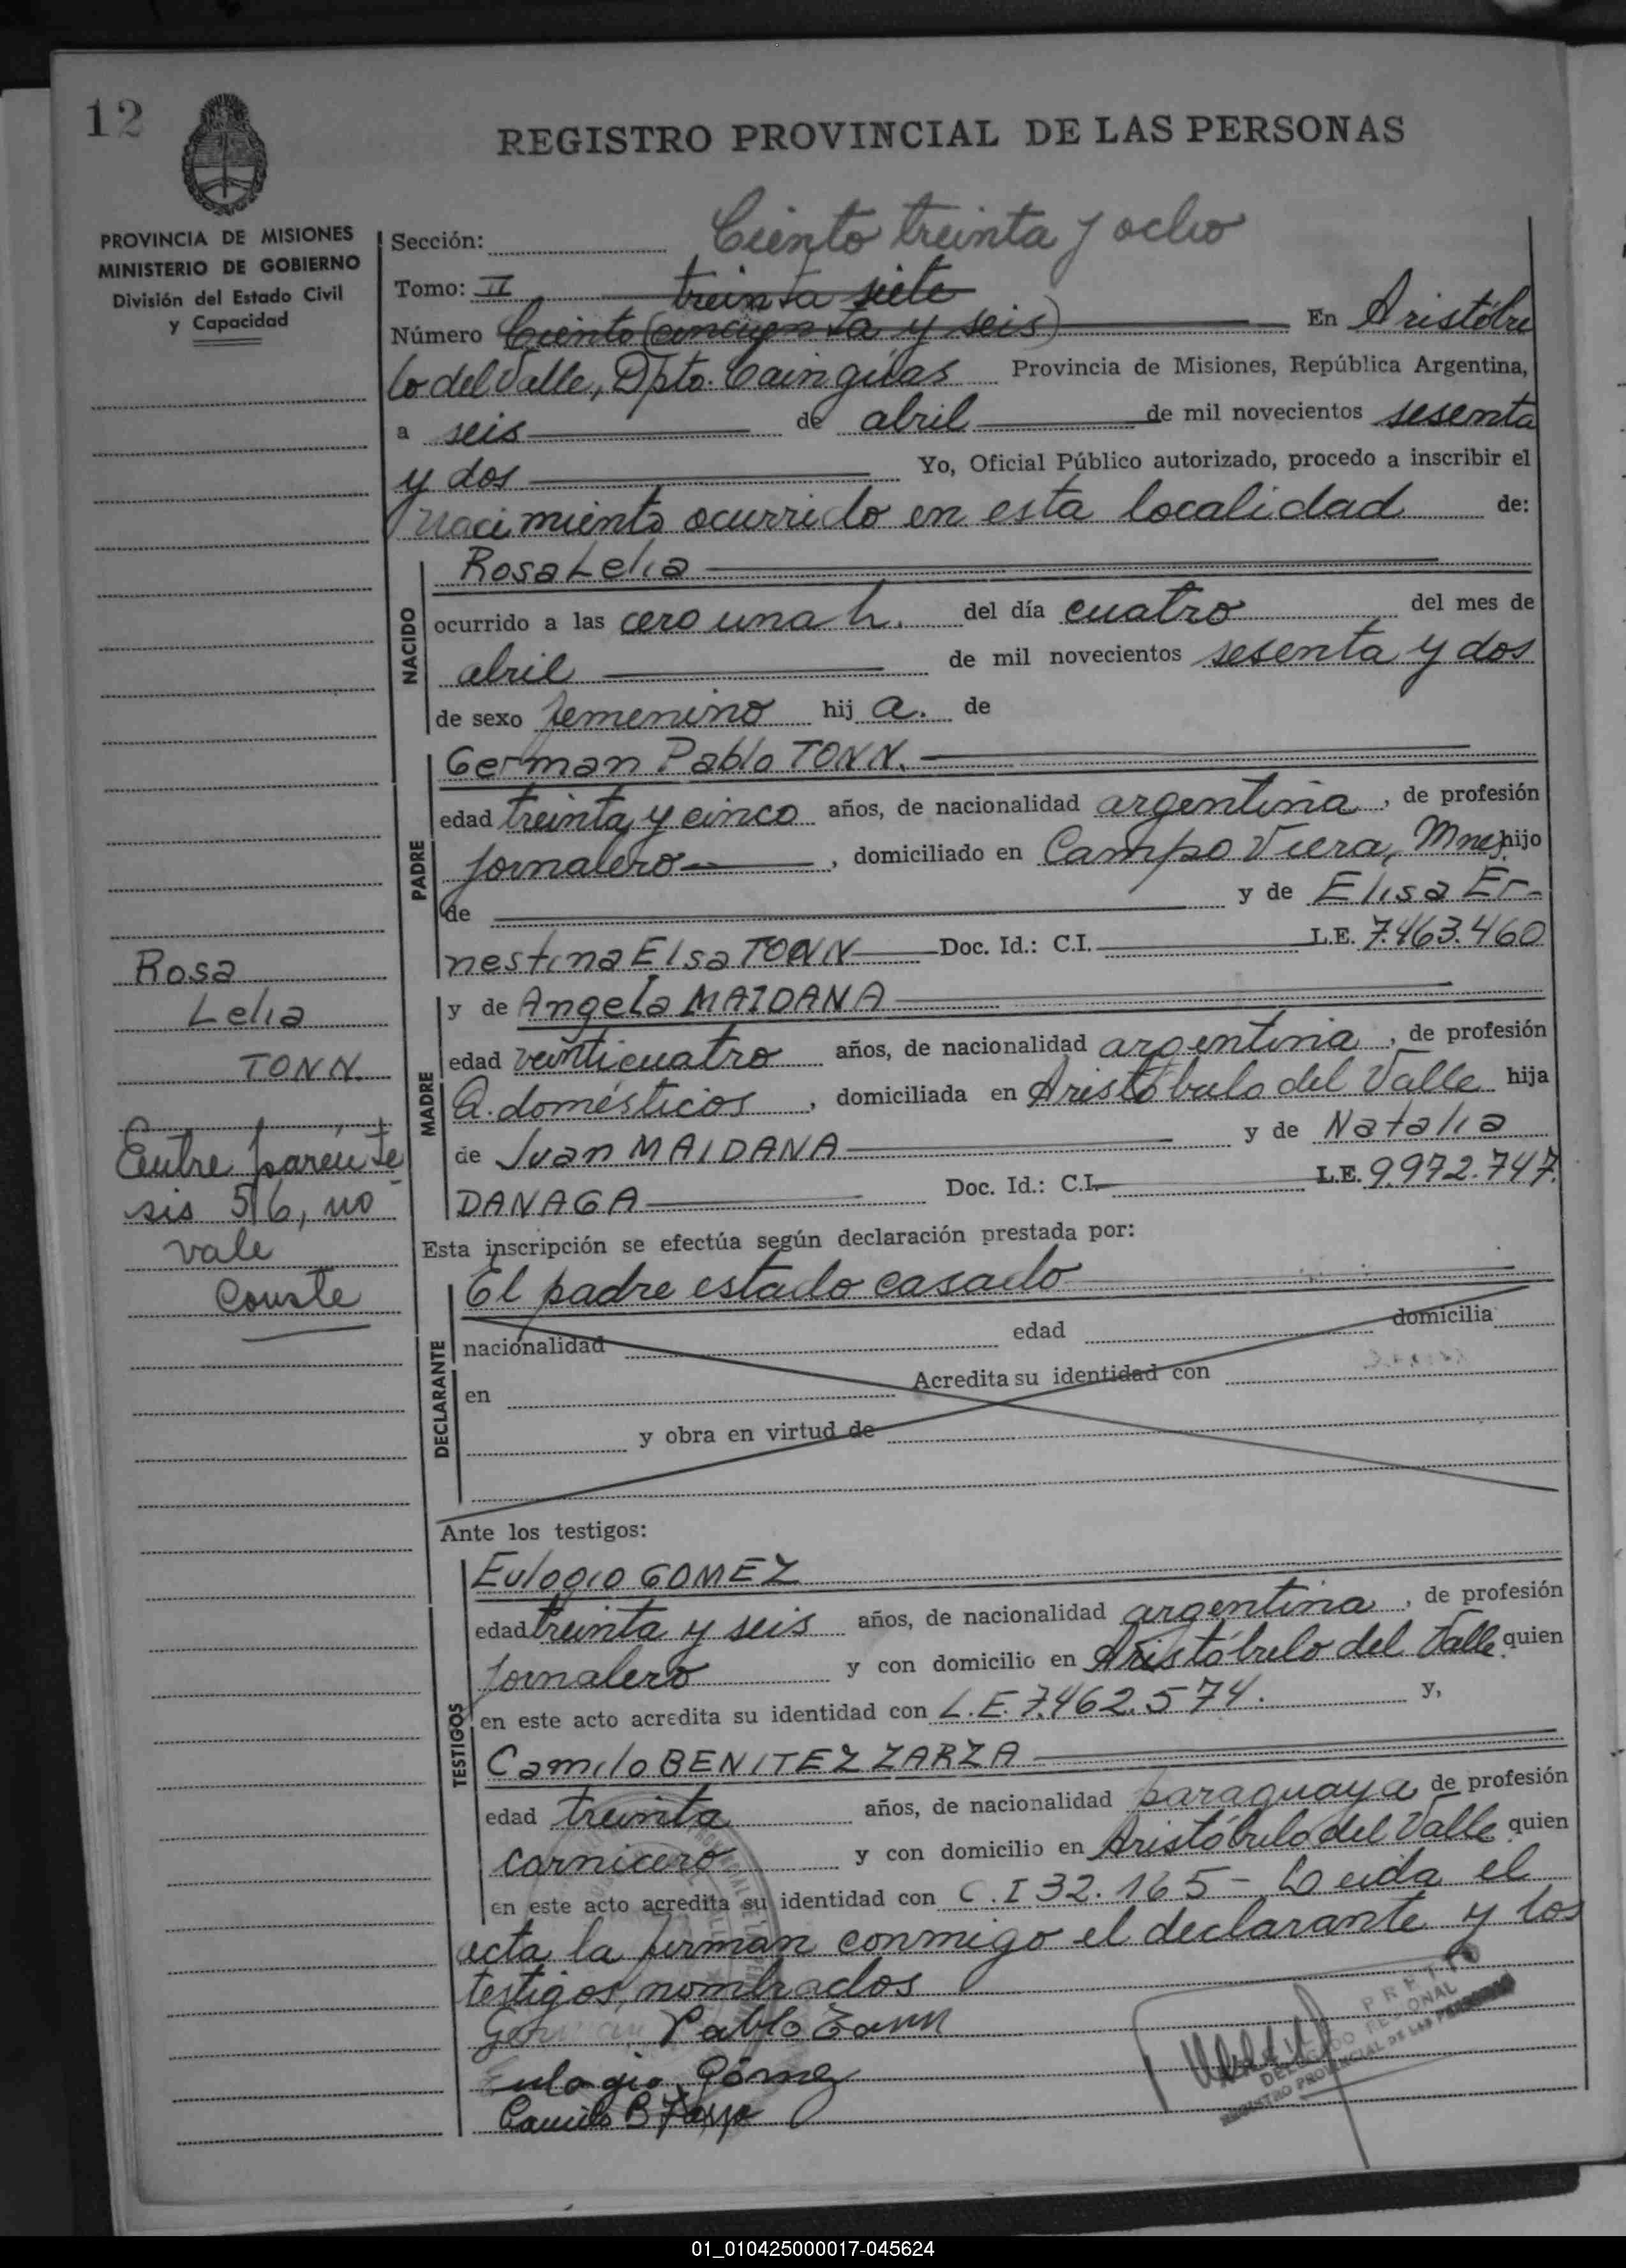 12
REGISTRO PROVINCIAL DE LAS PERSONAS
PROVINCIA DE MISIONES
MINISTERIO DE GOBIERNO
División del Estado Civil
y Capacidad
Sección: Ciento treinta y ocho
Tomo: II treinta siete
Número Ciento (cincuenta y seis) En Aristóbu
lo del Valle, Dpto. Cainguás Provincia de Misiones, República Argentina,
a seis de abril de mil novecientos sesenta
y dos Yo, Oficial Público autorizado, procedo a inscribir el
nacimiento ocurrido en esta localidad de:
NACIDO
Rosa Lelia
ocurrido a las cero una h. del día cuatro del mes de
abril de mil novecientos sesenta y dos
de sexo femenino hij a. de
PADRE
German Pablo TONN.
edad treinta y cinco años, de nacionalidad argentina, de profesión
jornalero, domiciliado en Campo Viera, Mnes. hijo
de y de Elisa Er-
nestina Elsa TONN Doc. Id.: C.I. L.E. 7.463.460
MADRE
y de Angela MAIDANA
edad veinticuatro años, de nacionalidad argentina, de profesión
Q. domésticos, domiciliada en Aristóbulo del Valle hija
de Juan MAIDANA y de Natalia
DANAGA Doc. Id.: C.I. L.E. 9.972.747.
Rosa
Lelia
TONN.
Entre parénte
sis 5/6, no
vale
Conste
Esta inscripción se efectúa según declaración prestada por:
DECLARANTE
El padre estado casado
nacionalidad edad domicilia
en Acredita su identidad con
y obra en virtud de
Ante los testigos:
TESTIGOS
Eulogio GOMEZ
edad treinta y seis años, de nacionalidad argentina, de profesión
jornalero y con domicilio en Aristóbulo del Valle. quien
en este acto acredita su identidad con L.E. 7.462.574. y,
Camilo BENITEZ ZARZA
edad treinta años, de nacionalidad paraguaya de profesión
carnicero y con domicilio en Aristóbulo del Valle quien
en este acto acredita su identidad con C.I 32.165- Leida el
acta la firman conmigo el declarante y los
testigos nombrados
German Pablo Tonn
Eulogio Gómez
Camilo B Zarza
DELEGADO REGIONAL
REGISTRO PROVINCIAL DE LAS PERSONAS
01_010425000017-045624